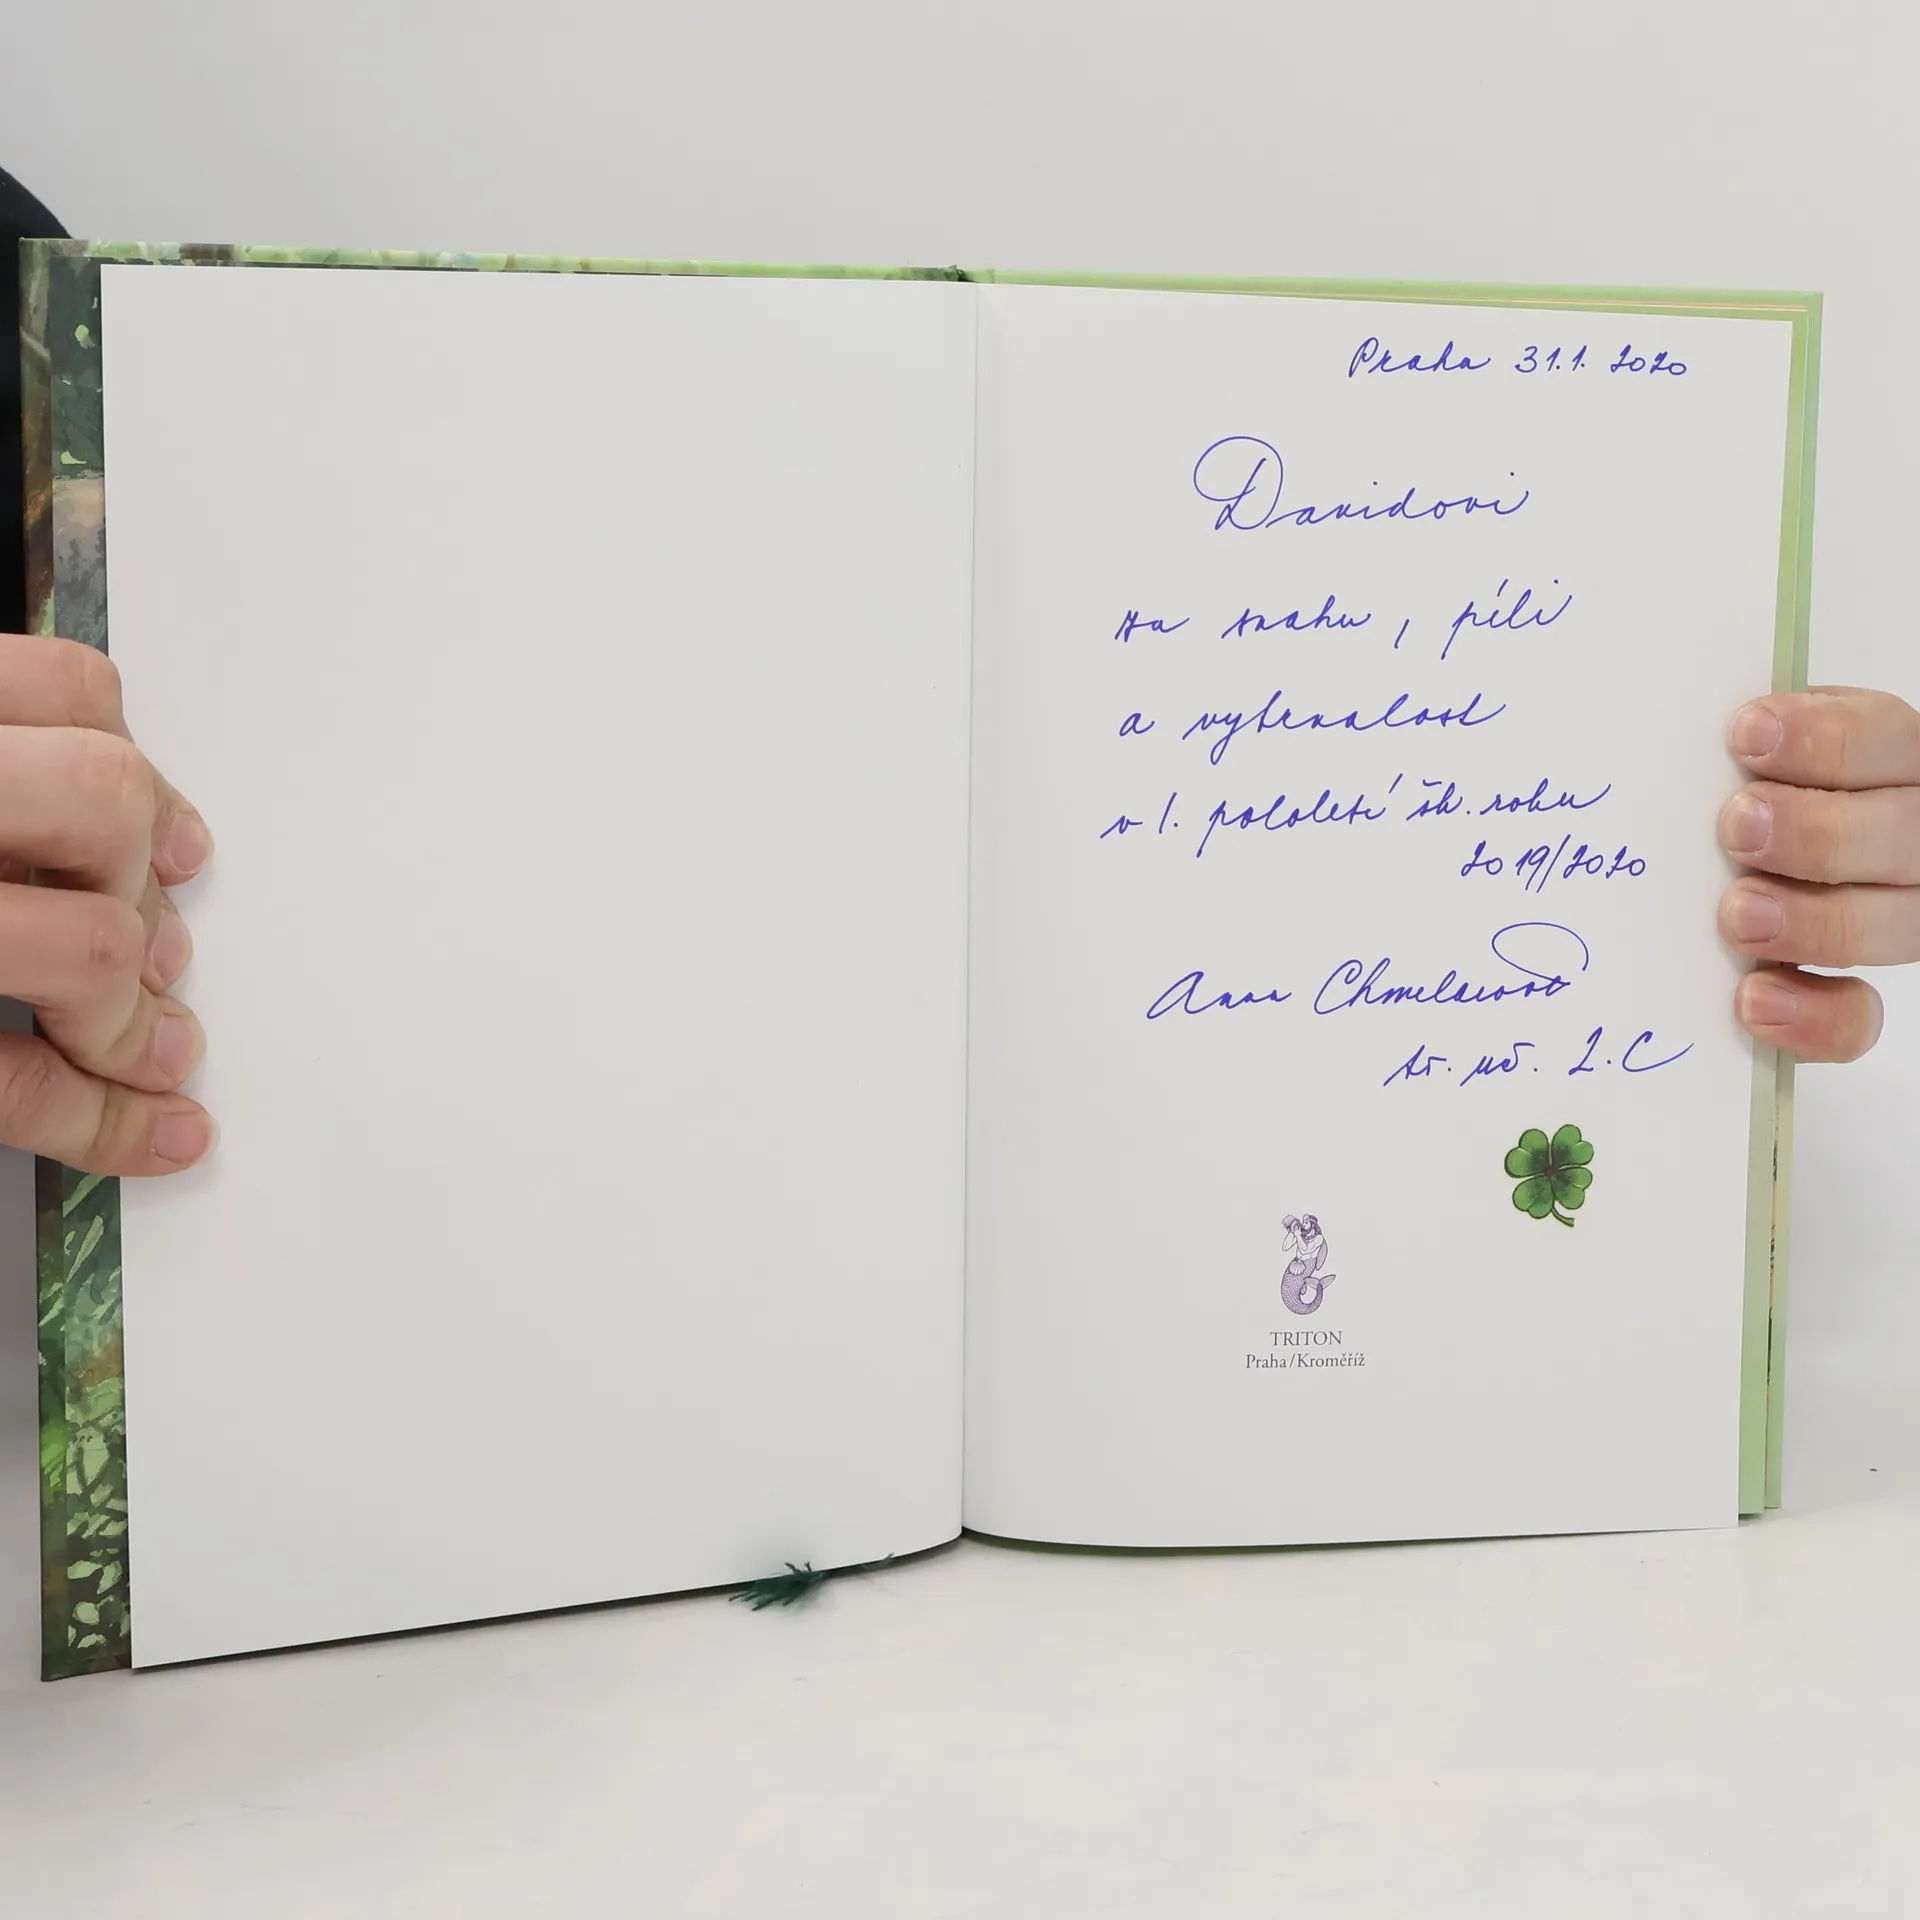 Praha 31.1. 2020
Davidovi
za snahu, píli
a vytrvalost
v 1. pololetí šk. roku
2019/2020
Anna Chmelařová
tř. uč. 2.C
TRITON
Praha/Kroměříž